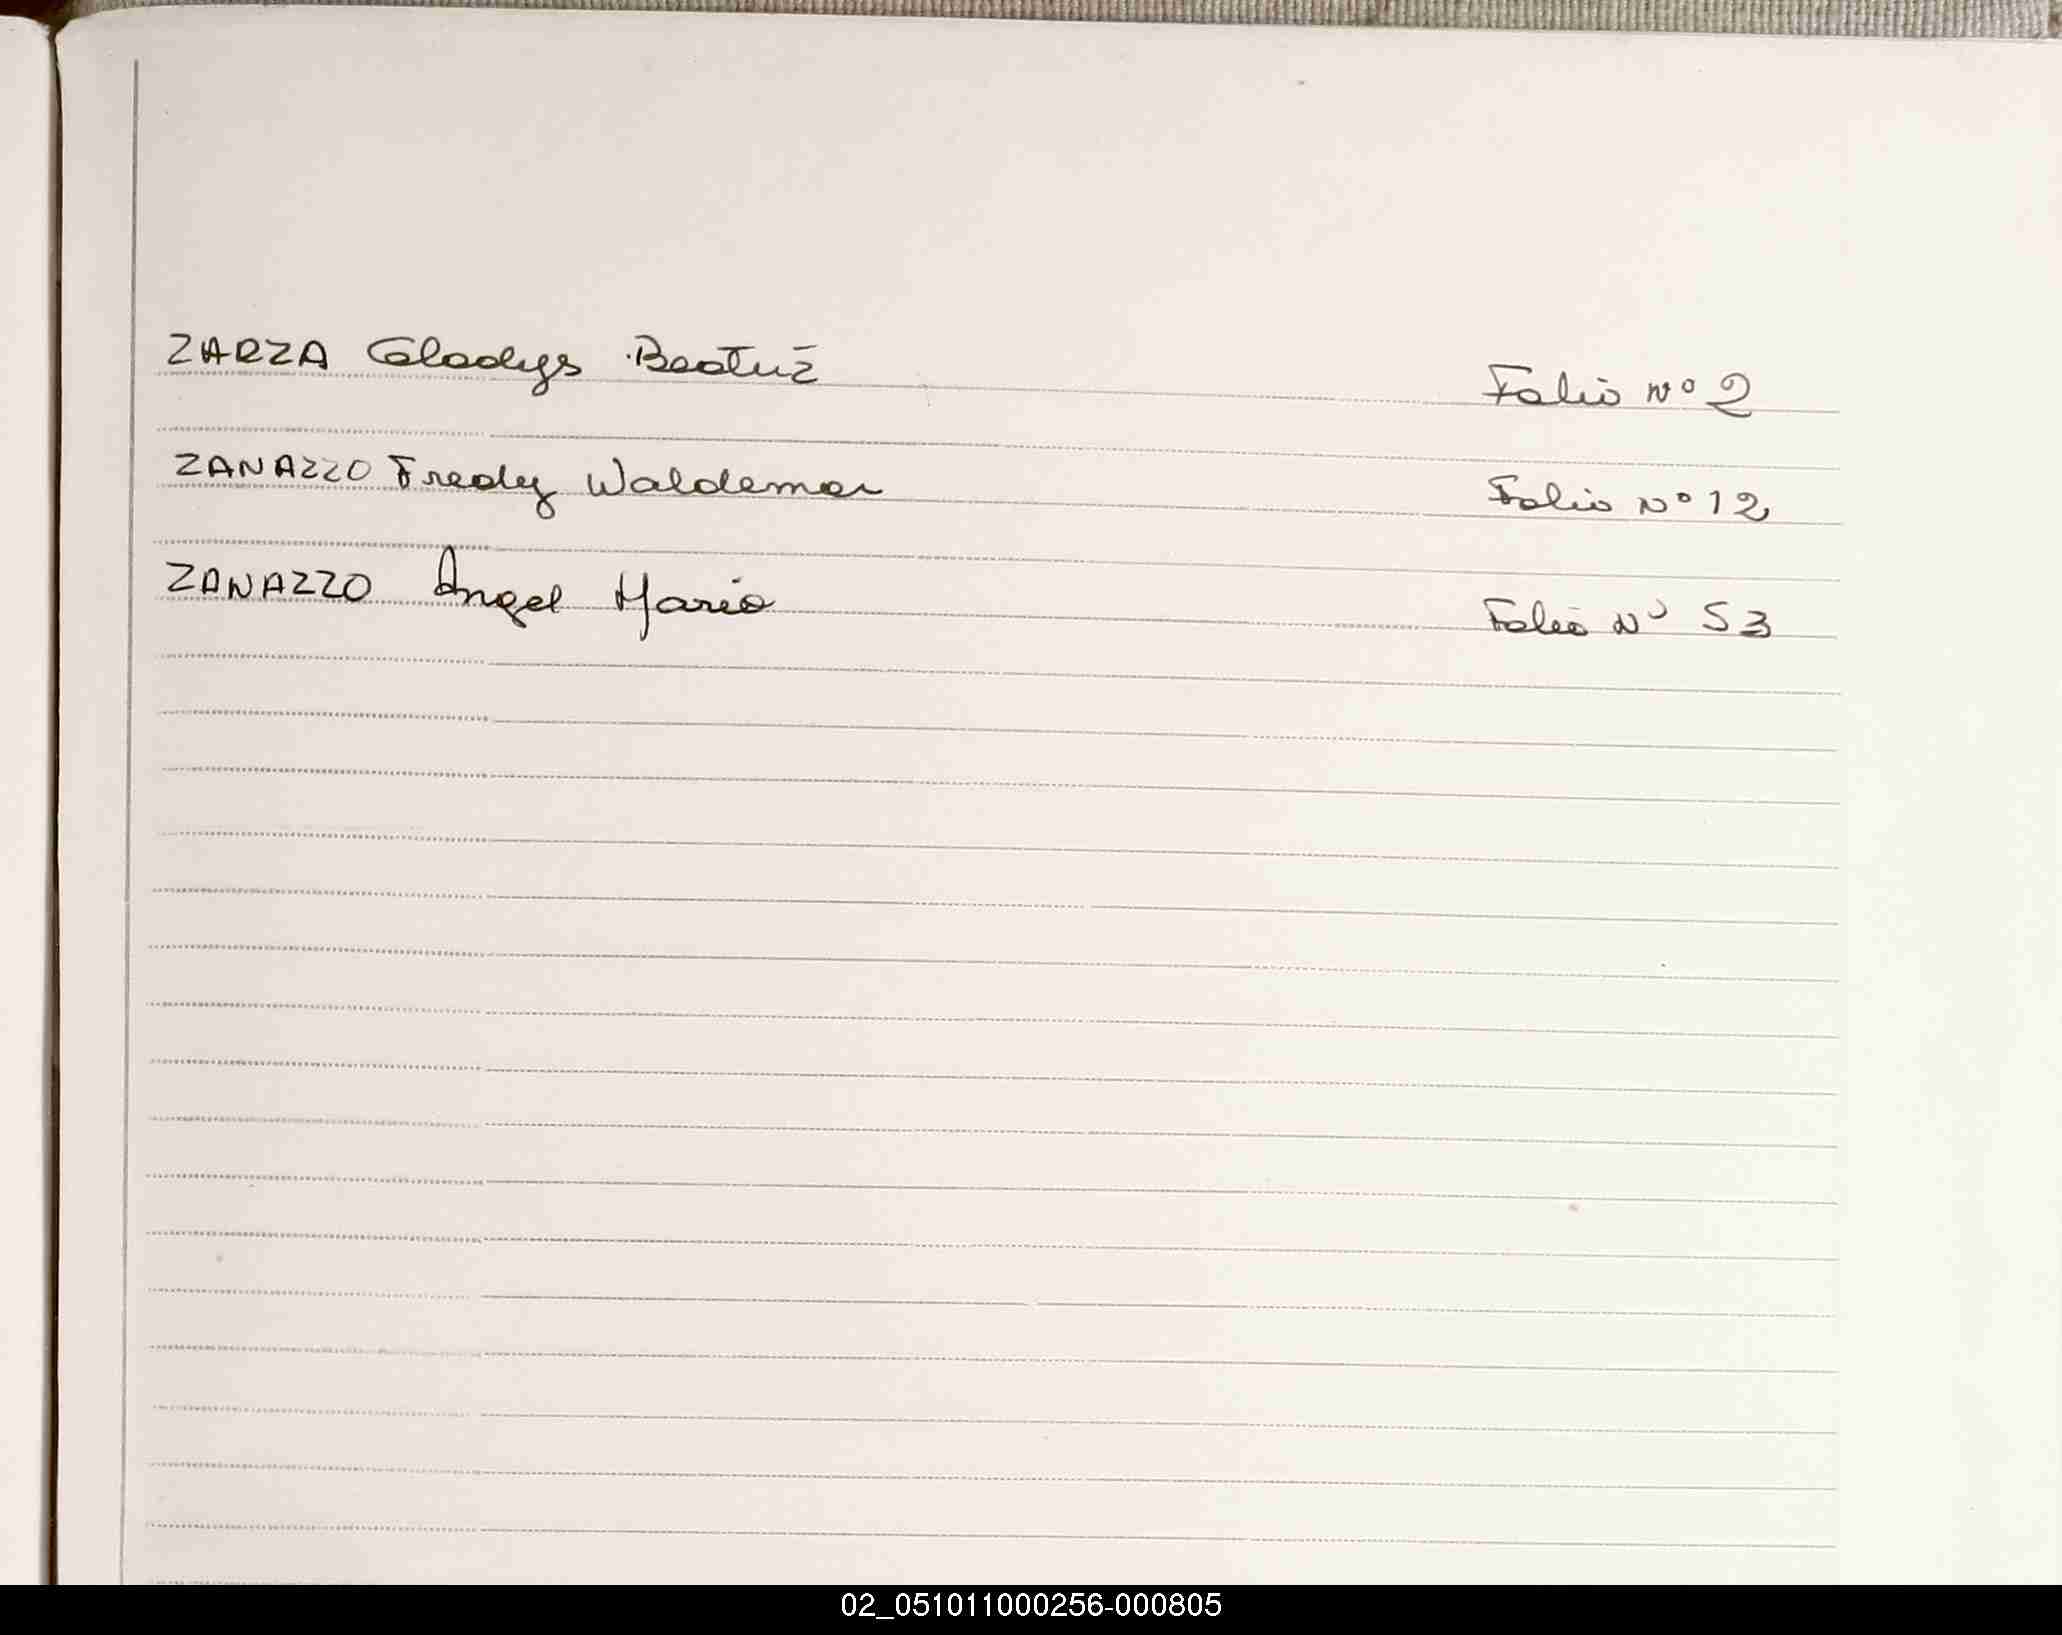 ZARZA Gladys Beatriz Folio Nº 2
ZANAZZO Fredy Waldemar Folio Nº 12
ZANAZZO Ángel Mario Folio Nº 53
02_051011000256-000805